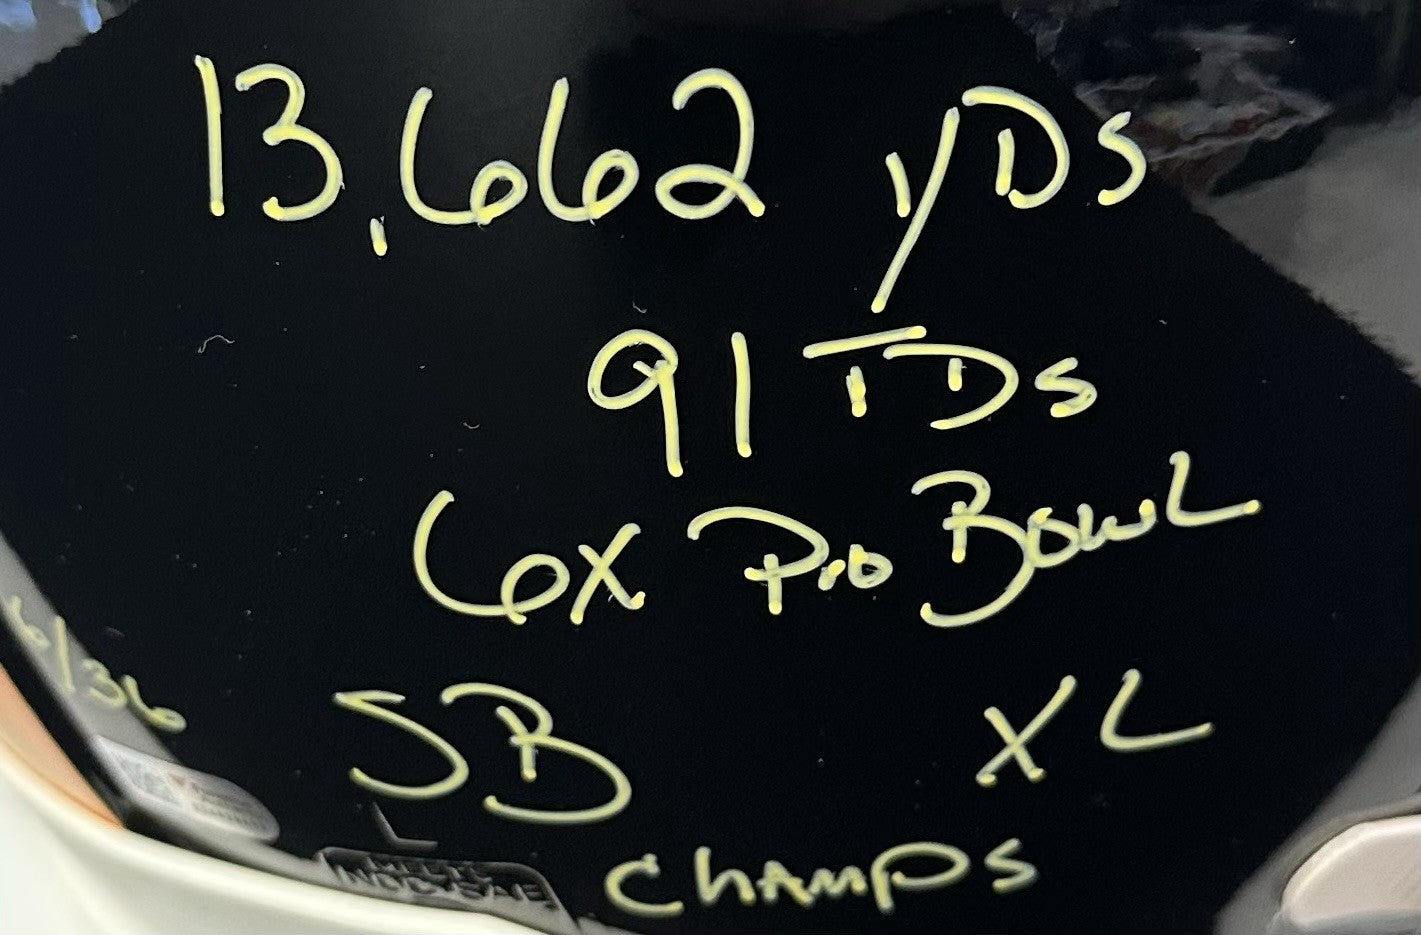 13,662 yDs
91 TDs
6x Pro Bowl
SB XL
ChAmps
6/36
L
MEETS
NOCSAE